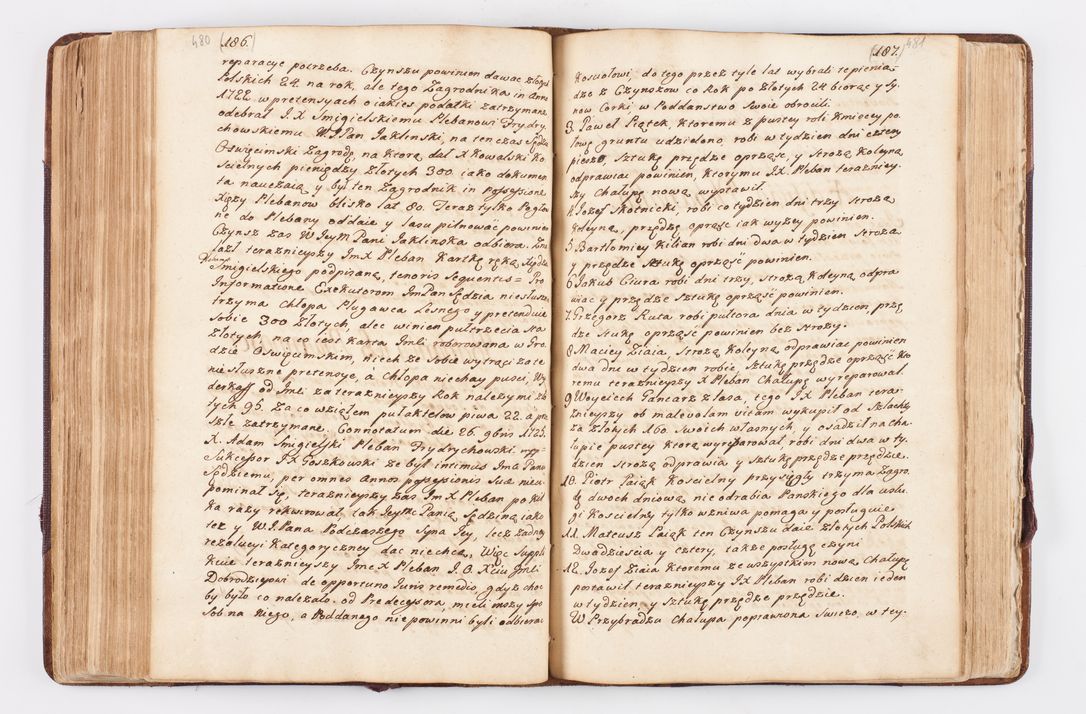 480 (186.)
reparacye potrzeba. Czynszu powinien dawac złotych
Polskich 24. na rok, ale tego Zagrodnika in Anno
1722. w pretensyach o iakies podatki zatrzymane
odebrał I.X Smigielskiemu Plebanowi Frydry,
chowskiemu W.JPan Jaklinski, na ten czas Sędzia
Oswięcimski Zagrodę, na ktorą dał X Kowalski Ko
scielnych pieniędzy Złotych 300. iako dokumen
ta nauczaią y był ten Zagrodnik in possessione
Xięży Plebanow blisko lat 80. Teraz tylko Pogło,
ne do Plebany oddaie y lasu pilnować powinien
Czynsz zas W JeyM Pani Jaklinska odbiera. Zna
lazł terazniejszy Imx Pleban Kartkę ręką Xiędza
Plebana
Smigielskiego podpisaną, tenoris sequentis = Pro
Informatione Exekutorom ImPan Sędzia niesłusznie
trzyma Chłopa Pługawca Lesnego y pretenduie
sobie 300 Złotych, alec winien pułtrzecia sta
Złotych, na co iest Karta Jmli roborowana w Gro
dzie Oswięcimskim, niech ze sobie wytrąci za te
niesłuszne pretensye, a Chłopa niechay pusci, Wy
derkaff od Jmli za terazniejszy Rok nalezy mi zło
tych 95. Za co wziąłem pułaktelow piwa 22. a prze
szłe zatrzymane. Connotatum die 26. gbris 1725.
X. Adam Smigielski Pleban Frydrychowski. mpp=
Sukcessor I X Goszkowski ze był intimus Jmci Pana
Sędziemu, per omnes Annos possessionis suæ nieu
pominał się, terazniejszy zas Jm X Pleban po kil
ka razy rekwirował tak JeyMc Panią Sędziną iako
tez y W.JPana Podczaszego Syna Jey, lecz zadney
rezolucyi kategoryczney dac niechcą, Więc Suppli
kuie terazniejszy Jmc X Pleban J.O. Xciu Jmli
Dobrodziejowi de opportuno Juris remedio, gdyz cho,
by było co nalezało od Predecessora, mieli inszy spo
sob na niego, a Poddanego nie powinni byli odbierac
(187.) 481
Kosciołowi, do tego przez tyle lat wybrali te pienią
dze z Czynszow co Rok po Złotych 24 biorąc y Sy,
now Corki w Poddanstwo Swoie obrocili.
3. Paweł Piątek, ktoremu z pustey roli Kmiecey po,
łowę gruntu udzielono, robi w tydzien dni cztery
pieszo, Sztukę przędze oprząsc, y Strozą Koleyną
odprawiac powinien, ktorymu I.X. Pleban terazniey
szy Chałupę nową wystawił.
4. Jozef Skotnicki, robi co tydzien dni trzy stroza
Koleyna, przędzę oprząsc iak wyzey powinien.
5. Bartłomiey Kilian robi dni dwa w tydzien stroza
y przędze Sztukę oprząsć powinien.
6. Jakub Ciura robi dni trzy, strozą Koleyną odpra
wiac y przędze Sztukę oprząsć powinien.
7. Grzegorz Kuta robi pułtora dnia w tydzien, przę
dze Stukę oprząsć powinien bez Strozy.
8. Maciey Ziaia, strozą Koleyną odprawiac powinien
dwa dni w tydzien robic, Sztukę przędze oprząsć kto
remu terazniejszy X Pleban Chałupę wyreparował.
9. Woyciech Pancarz z lasa, tego I.X. Pleban tera=
znieyszy ob malevolam vitam wykupił od Szlachty
za Złotych 160. Swoich własnych, y osadził na cha,
łupie pustey ktorą wyreparował robi dni dwa w ty,
dzien strozą odprawia y sztukę przędze przędzie.
10. Piotr Paiąk Koscielny przysięgły trzyma Zagro,
dę dwoch dniową, nie odrabia Panskiego dla usłu,
gi Koscielny tylko w zniwa pomaga y posługuie
11. Mateusz Paiąk ten Czynszu daie Złotych Polskich
Dwadziescia y cztery, takze posługę czyni
12. Jozef Ziaia ktoremu ze wszystkim nową Chałupę
postawił terazniejszy I.X Pleban robi dzien ieden
w tydzien y Sztukę przędze przędzie.
W Przybradzu Chałupa poprawiona swiezo, w tey-